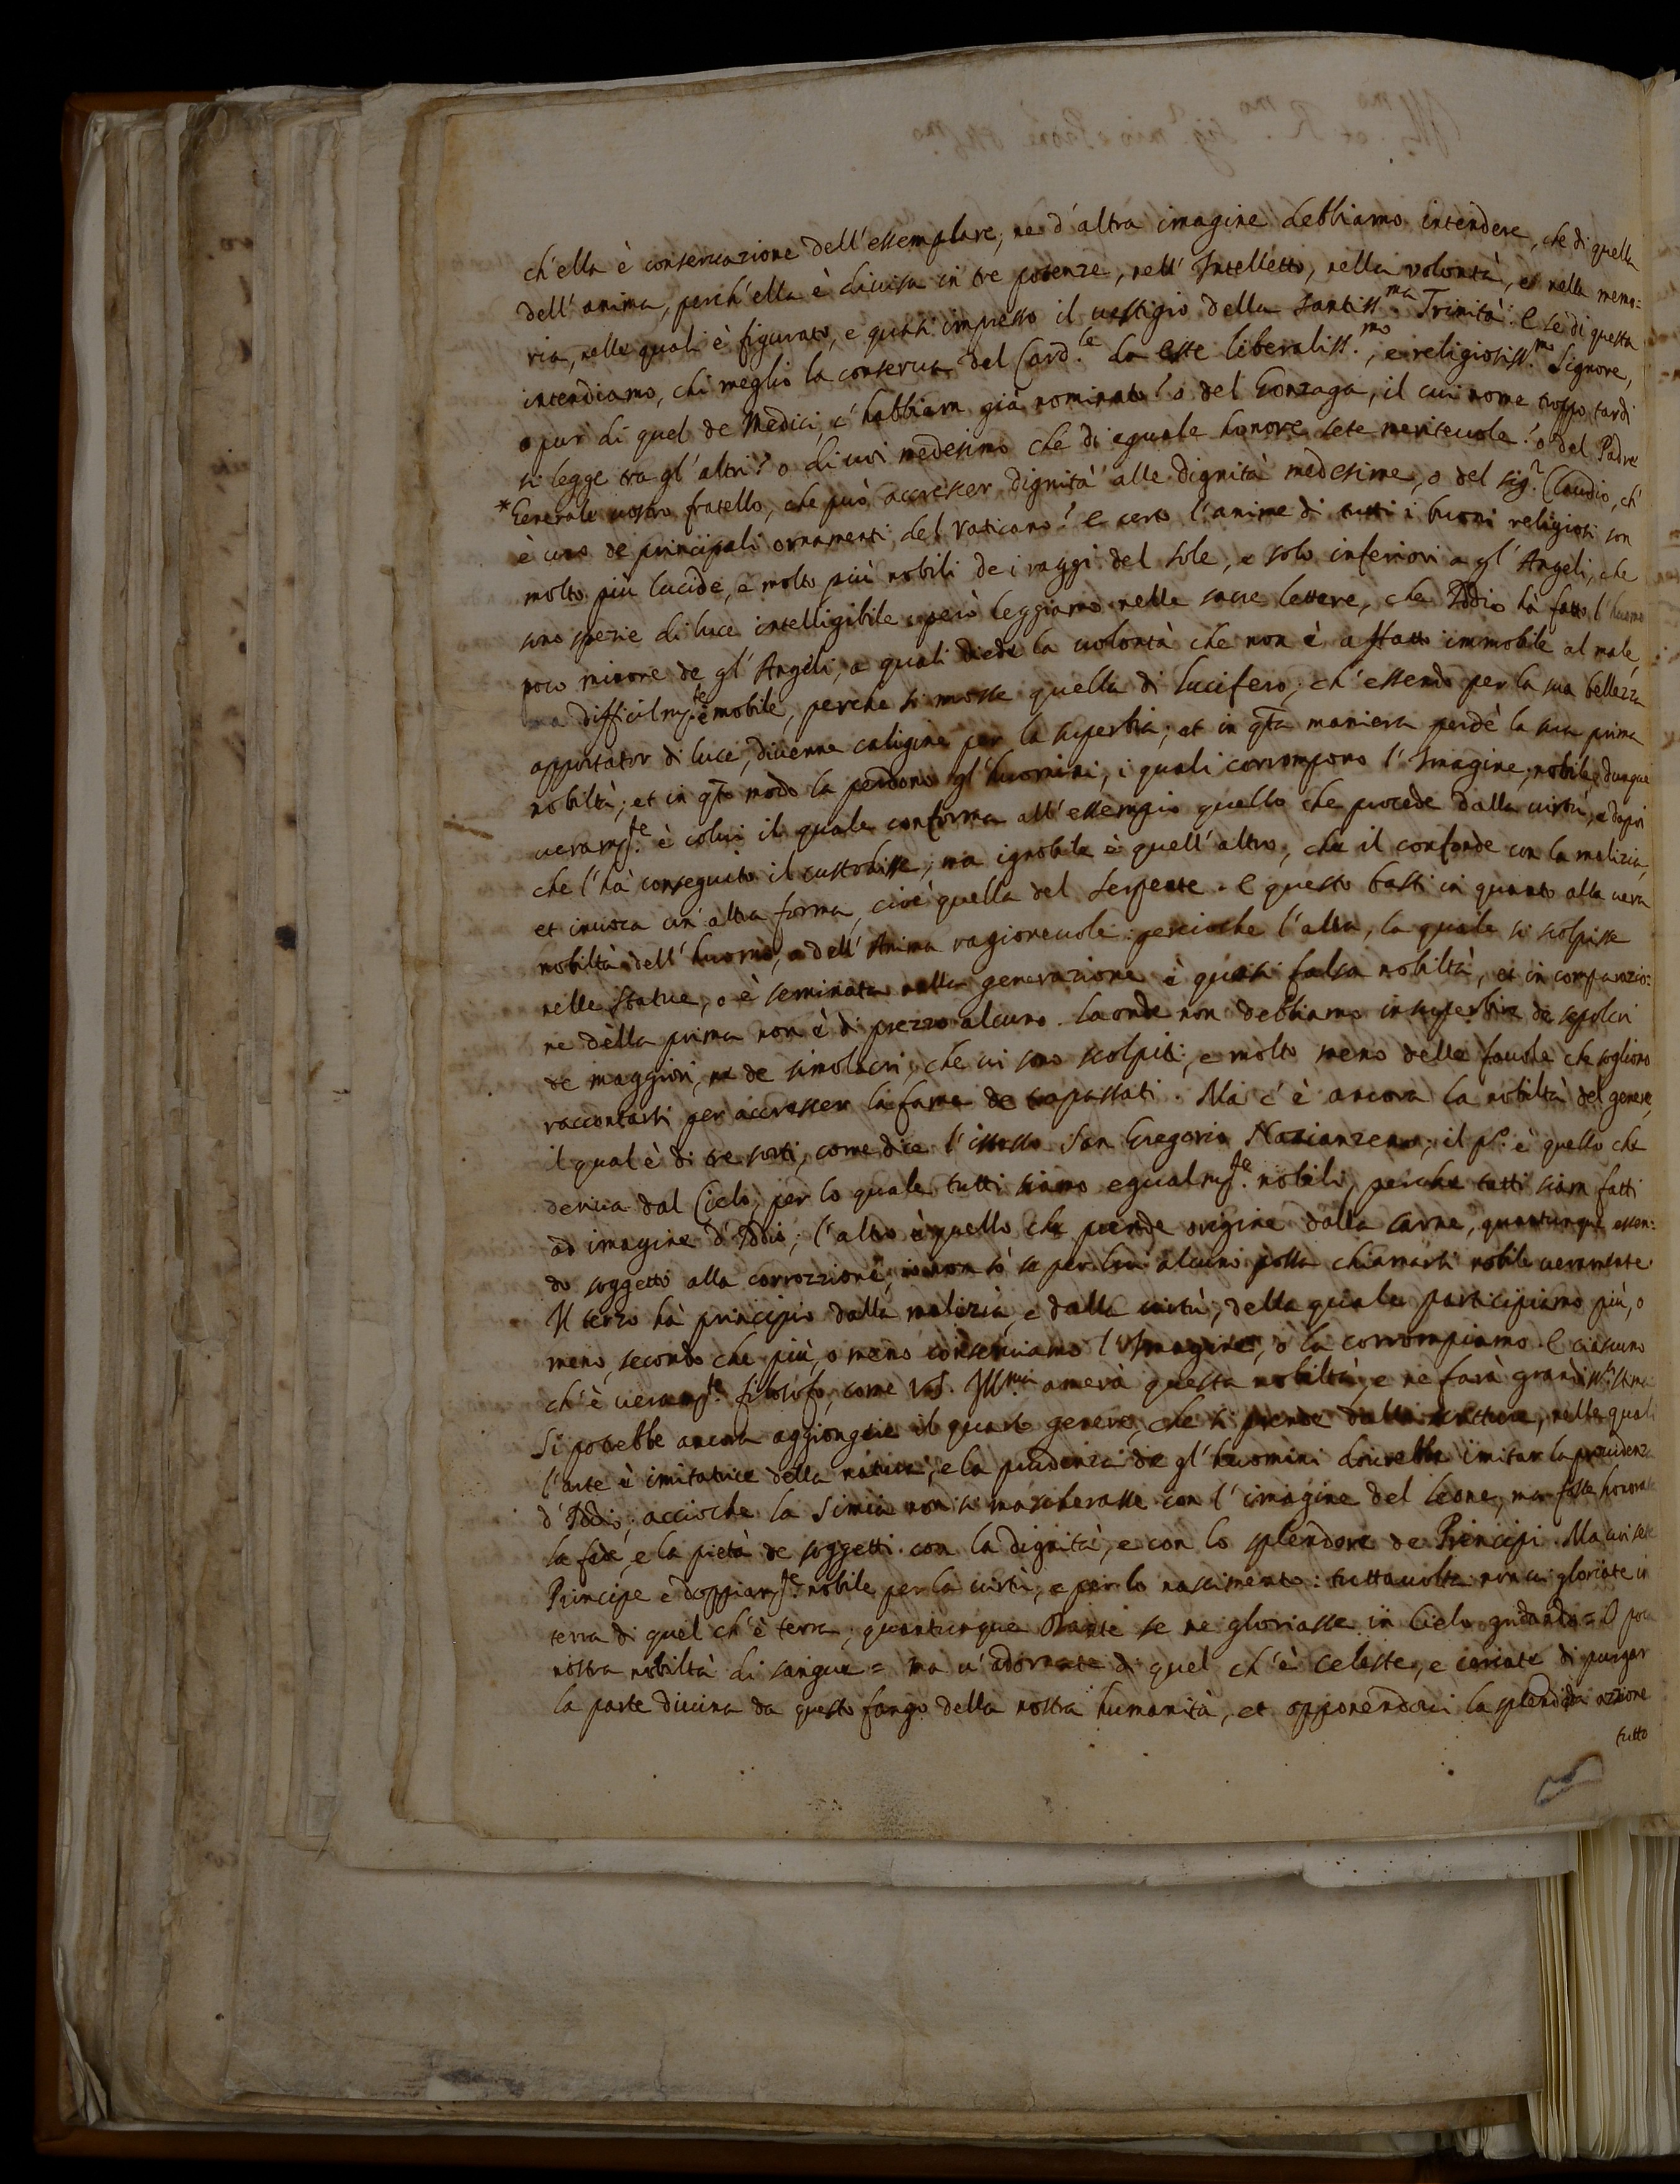 ch'ella è conseruazione dell'essemplare; ne d'altra imagine debbiamo intendere, che di quella
dell'anima, perch'ella è diuisa in tre potenze, nell'Intelletto, nella volontà, et nella memo=
ria, nelle quali è figurato, e quasi impresso il uestigio della Santiss.ma Trinità: E se di questa
intendiamo, chi meglio la conserua del Card.le da Este liberaliss.mo, e religiosiss.mo Signore,
o pur di quel de Medici, c'habbiam già nominato? o del Gonzaga, il cui nome troppo tardi
si legge tra gl'altri? o di uoi medesimo che di eguale honore sete meriteuole? o del Padre
*Generale uostro fratello, che può accrescer dignità alle dignità medesime, o del Sig.r Claudio, ch'
è uno de principali ornamenti del Vaticano? E certo l'anime di tutti i buoni religiosi son
molto più lucide, e molto più nobili de i raggi del sole, e solo inferiori a gl'Angeli, che
sono spezie di luce intelligibile: però leggiamo nelle sacre lettere, che Iddio hà fatto l'huomo
poco minore de gl'Angeli, a quali diede la uolontà che non è affatto immobile al male,
ma difficilmte è mobile, perche si mosse quella di Lucifero; ch'essendo per la sua bellezza
apportator di luce, diuenne caligine per la superbia; et in qta maniera perdè la sua prima
nobiltà; et in qto modo la perdono gl'huomini, i quali corrompono l'Imagine; nobile dunque
ueramte è colui il quale conforma all'essempio quello che procede dalla uirtù, e dapoi
che l'hà conseguito il custodisse; ma ignobile è quell'altro, che il confonde con la malizia,
et inuoca un'altra forma, cioè quella del Serpente. E questo basti in quanto alla uera
nobiltà dell'huomo, o dell'Anima ragioneuole: percioche l'altra, la quale si scolpisse
nelle statue, o è seminata nella generazione è quasi falsa nobiltà, et in comparazio=
ne della prima non è di prezzo alcuno. Laonde non debbiamo insuperbire de sepolcri
de maggiori, ne de simolacri, che ui sono scolpiti; e molto meno delle fauole che sogliono
raccontarsi per accrescer la fama de trapassati. Ma c'è ancora la nobiltà del genere,
il qual è di tre sorti, come dice l'istesso San Gregorio Nazianzeno; il po. è quello che
deriua dal Cielo, per lo quale tutti siamo egualmte nobili, perche tutti siam fatti
ad imagine d'Iddio; l'altro è quello che prende origine dalla carne, quantunque essen=
do soggetto alla corrozzione, io non sò se per lui alcuno possa chiamarsi nobile ueramente
Il terzo hà principio dalla malizia, e dalla uirtù, della quale participiamo più, o
meno, secondo che più, o meno conseruiamo l'Imagine, o la corrompiamo. E ciascuno
ch'è ueramte filosofo, come V.S. Ill.ma amerà questa nobiltà, e ne farà grandiss.a stima
Si potrebbe ancora aggiongere il quarto genere, che si prende dalle scritture, nelle quali
l'arte è imitatrice della natura, e la prudenza de gl'huomini dourebbe imitar la prouidenza
d'Iddio; accioche la Simia non si mascherasse con l'imagine del leone, ma fosse honorata
la fede, e la pietà de soggetti con la dignità, e con lo splendore de Principi. Ma uoi sete
Principe e doppiamte nobile per la uirtù, e per lo nascimento: tuttauolta non ui gloriate in
terra di quel ch'è terra, quantunque Dante se ne gloriasse in Cielo gridando = O poca
nostra nobiltà di sangue = ma u'adornate di quel ch'è celeste, e cercate di purgar
la parte diuina da questo fango della nostra humanità, et opponendoui la splendida azzione
tutto